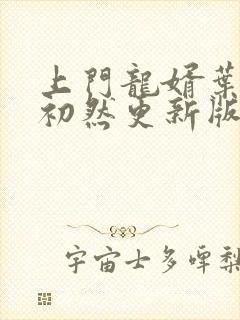 上門龍婿葉
初然更新版
宇宙士多啤梨